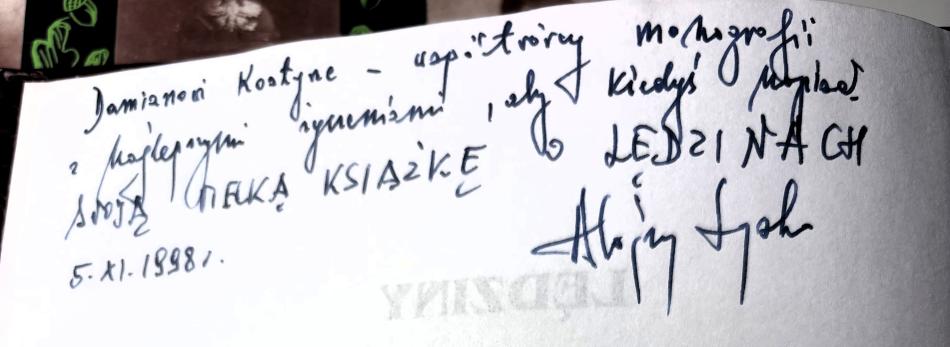 Damianowi Kostyrze – współtwórcy monografii
z najlepszymi życzeniami, aby kiedyś napisał
SWOJĄ WIELKĄ KSIĄŻKĘ O LĘDZINACH
Alojzy Lysko
5. XI. 1998 r.
LĘDZINY